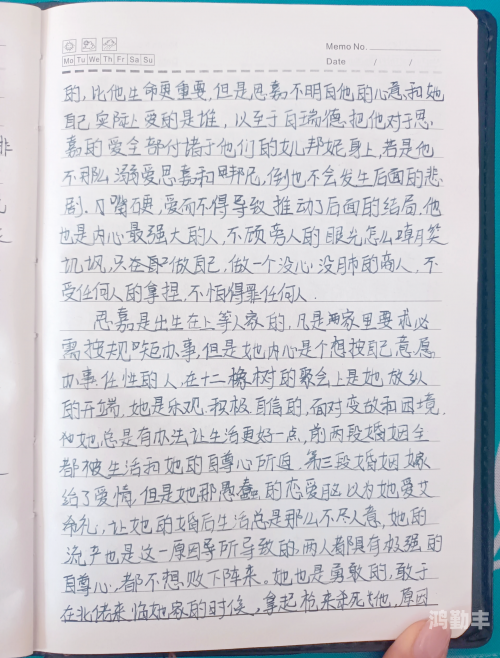 Memo No.
Mo Tu We Th Fr Sa Su
Date / /
的,比他生命更重要,但是思嘉不明白他的心意,和她
自己实际上爱的是谁,以至于白瑞德把他对于思
嘉的爱全都付诸于他们的女儿邦妮身上,若是他
不那么溺爱思嘉和邦尼,倒也不会发生后面的悲
剧.嘴硬,爱而不得导致推动了后面的结局.他
也是内心最强大的人,不顾旁人的眼光怎么嘲笑
讥讽,只在乎做自己,做一个没心没肺的商人,不
受任何人的拿捏,不怕得罪任何人.
思嘉是出生在上等人家的,凡是家里要求必
需按规矩办事,但是她内心是个想按自己意愿
办事任性的人,在十二橡树的聚会上是她放纵
的开端,她是乐观积极自信的,面对变故和困境.
她总是有办法让生活更好一点,前两段婚姻全
都被生活和她的自尊心所迫.第三段婚姻嫁
给了爱情,但是她那愚蠢的恋爱脑以为她爱艾
希礼,让她的婚后生活总是那么不尽人意,她的
流产也是这一原因导所导致的,两人都具有极强的
自尊心,都不想败下阵来。她也是勇敢的,敢于
在北佬来临她家的时候,拿起枪来杀死他,原因
鸿勤丰